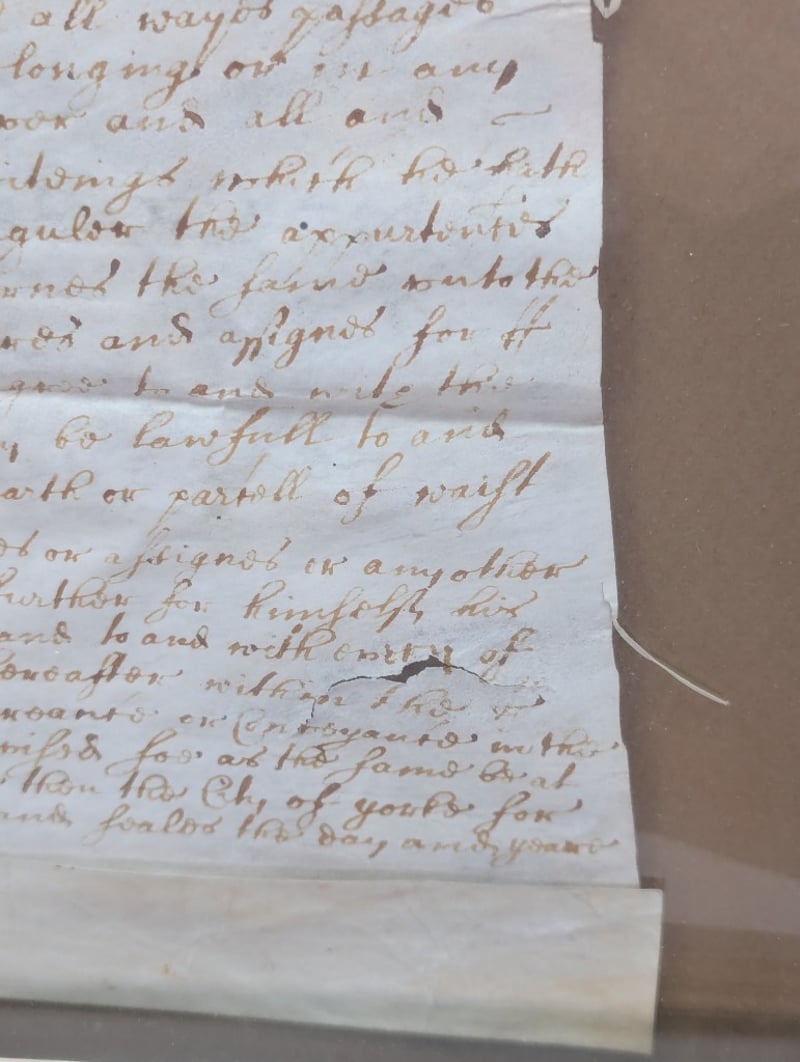 all wayes passages
longing or in any
and all and
which he hath
guler the appurtenc̃es
the same unto the
res and assignes for
gree to and with the
be lawfull to and
or parcell of waist
es or assignes or any other
further for himselfe his
and to and with every of
hereafter within the
or Conveyance in the
soe as the same be at
then the City of yorke for
and seales the day and yeare